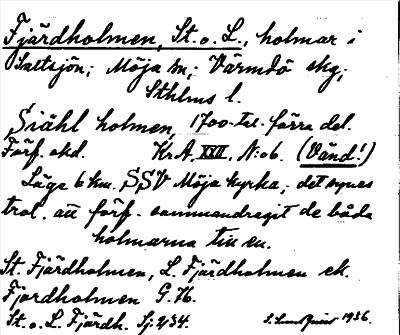 Fjärdholmen, St. o. L., holmar i
Saltsjön; Möja sn; Värmdö skg;
Sthlms l.
Siähl holmen, 1700-tal. förra del.
Förf. okd. Kr.A. XXII. N:o 6. (Vänd!)
Läge 6 km. SSV Möja kyrka; det synes
trol. att förf. sammandragit de båda
holmarna till en.
St. Fjärdholmen, L. Fjärdholmen ek.
Fjärdholmen G. 76.
St. o. L. Fjärdh. Sj. 2/34.
1936.